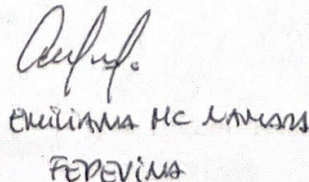 EMILIANA MC NAMARA
FEDEVINA